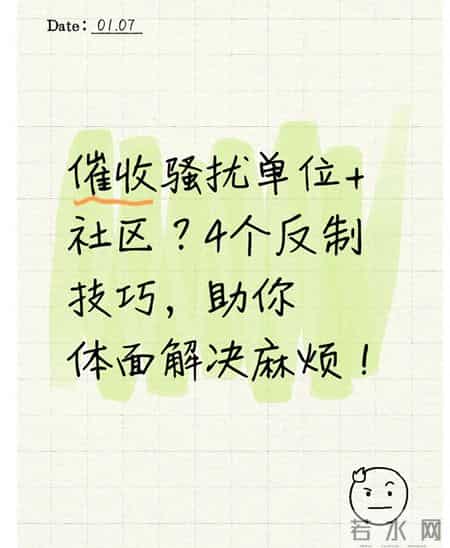 Date: 01.07
催收骚扰单位+
社区?4个反制
技巧,助你
体面解决麻烦!
若水网